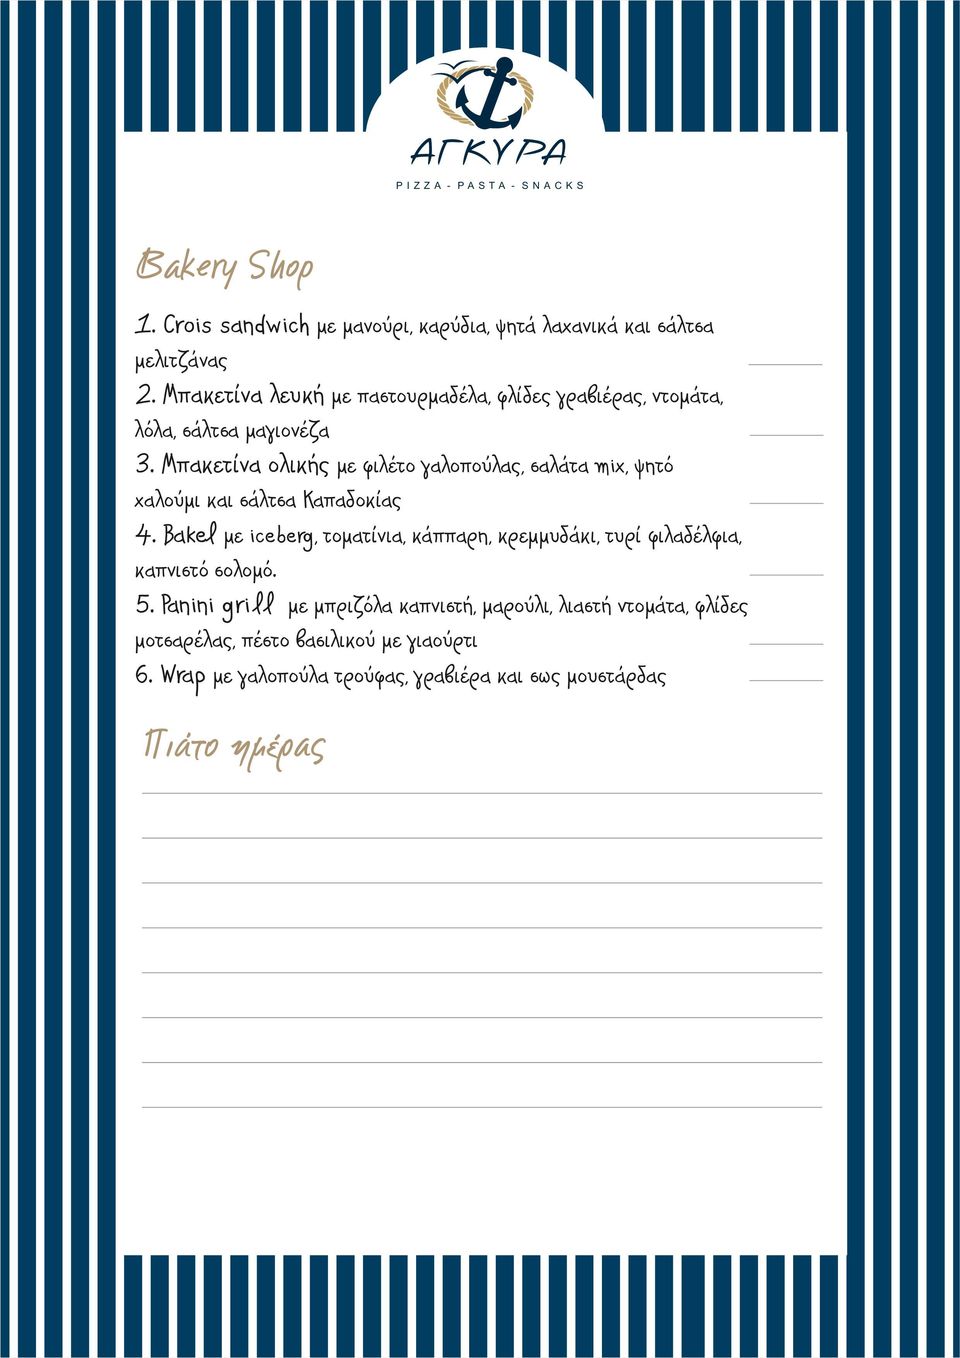 ΑΓΚΥΡΑ
PIZZA - PASTA - SNACKS
Bakery Shop
1. Crois sandwich με μανούρι, καρύδια, ψητά λαχανικά και σάλτσα
μελιτζάνας
2. Μπακετίνα λευκή με παστουρμαδέλα, φλίδες γραβιέρας, ντομάτα,
λόλα, σάλτσα μαγιονέζα
3. Μπακετίνα ολικής με φιλέτο γαλοπούλας, σαλάτα mix, ψητό
χαλούμι και σάλτσα Καπαδοκίας
4. Bakel με iceberg, τοματίνια, κάππαρη, κρεμμυδάκι, τυρί φιλαδέλφια,
καπνιστό σολομό.
5. Panini grill με μπριζόλα καπνιστή, μαρούλι, λιαστή ντομάτα, φλίδες
μοτσαρέλας, πέστο βασιλικού με γιαούρτι
6. Wrap με γαλοπούλα τρούφας, γραβιέρα και σως μουστάρδας
Πιάτο ημέρας